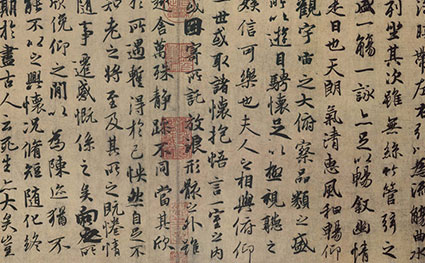 帶左右引以為流觴曲水
列坐其次雖無絲竹管弦之
盛一觴一詠亦足以暢敘幽情
是日也天朗氣清惠風和暢仰
觀宇宙之大俯察品類之盛
所以遊目騁懷足以極視聽之
娛信可樂也夫人之相與俯仰
一世或取諸懷抱悟言一室之內
或因寄所託放浪形骸之外雖
趣舍萬殊靜躁不同當其欣
於所遇暫得於己怏然自足不
知老之將至及其所之既惓情
隨事遷感慨係之矣向之所
欣俛仰之閒以為陳迹猶不
能不以之興懷況脩短隨化終
期於盡古人云死生亦大矣豈